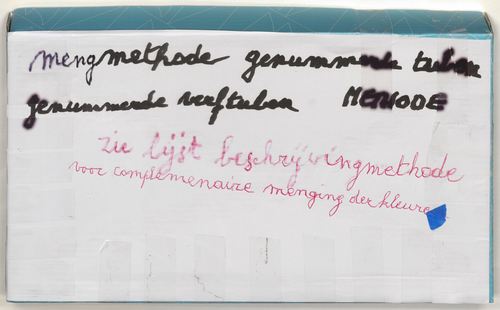 mengmethode genummerde tuben
genummerde verftuben METHODE
zie lijst beschrijvingmethode
voor complemenaire menging der kleure